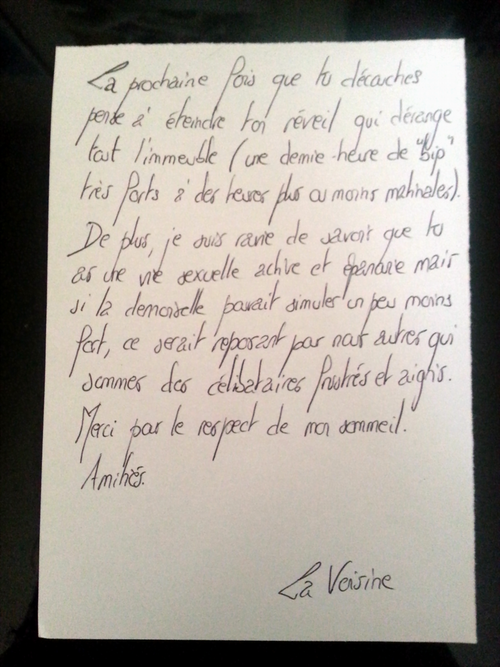 La prochaine fois que tu découches
pense à éteindre ton réveil qui dérange
tout l'immeuble (une demie-heure de "bip"
très forts à des heures plus ou moins matinales).
De plus, je suis ravie de savoir que tu
as une vie sexuelle active et épanouie mais
si la demoiselle pouvait simuler un peu moins
fort, ce serait reposant pour nous autres qui
sommes des célibataires frustrés et aigris.
Merci pour le respect de mon sommeil.
Amitiés.
La Voisine